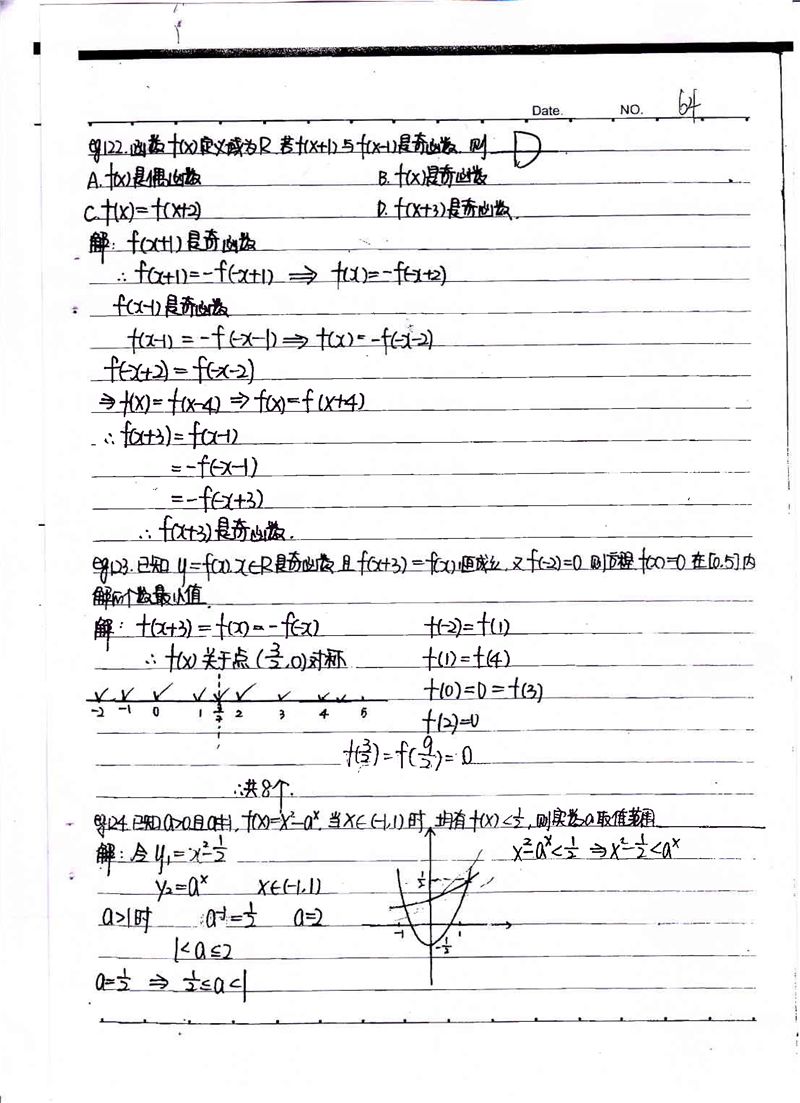 Date. NO. 64
eg122.函数f(x)定义域为R 若f(x+1)与f(x-1)是奇函数,则 D
A.f(x)是偶函数 B.f(x)是奇函数
C.f(x)=f(x+2) D.f(x+3)是奇函数.
解: f(x+1)是奇函数
∴ f(x+1)=-f(-x+1) ⇒ f(x)=-f(-x+2)
f(x-1)是奇函数
f(x-1)=-f(-x-1)⇒f(x)=-f(-x-2)
f(-x+2)=f(-x-2)
⇒f(x)=f(x-4)⇒f(x)=f(x+4)
∴f(x+3)=f(x-1)
=-f(-x-1)
=-f(-x+3)
∴f(x+3)是奇函数.
eg123.已知 y=f(x).x∈R是奇函数 且f(x+3)=f(x)恒成立,又f(-2)=0 则方程f(x)=0 在[0.5]内
解的个数最小值.
解: f(x+3)=f(x)=-f(-x) f(-2)=f(1)
∴ f(x)关于点(3/2,0)对称 f(1)=f(4)
f(0)=0=f(3)
-2 -1 0 1 3/2 2 3 4 5
f(2)=0
f(3/2)=f(9/2)=0
∴共8个.
eg124.已知a>0且a≠1,f(x)=x²-a^x.当x∈(-1,1)时,均有f(x)<1/2,则实数a取值范围
解:令y₁=x²-1/2 x²-a^x<1/2 ⇒x²-1/2<a^x
y₂=a^x x∈(-1,1) 1/2
a>1时 a⁻¹=1/2 a=2
-1 1 -1/2
1<a≤2
a=1/2 ⇒ 1/2≤a<1